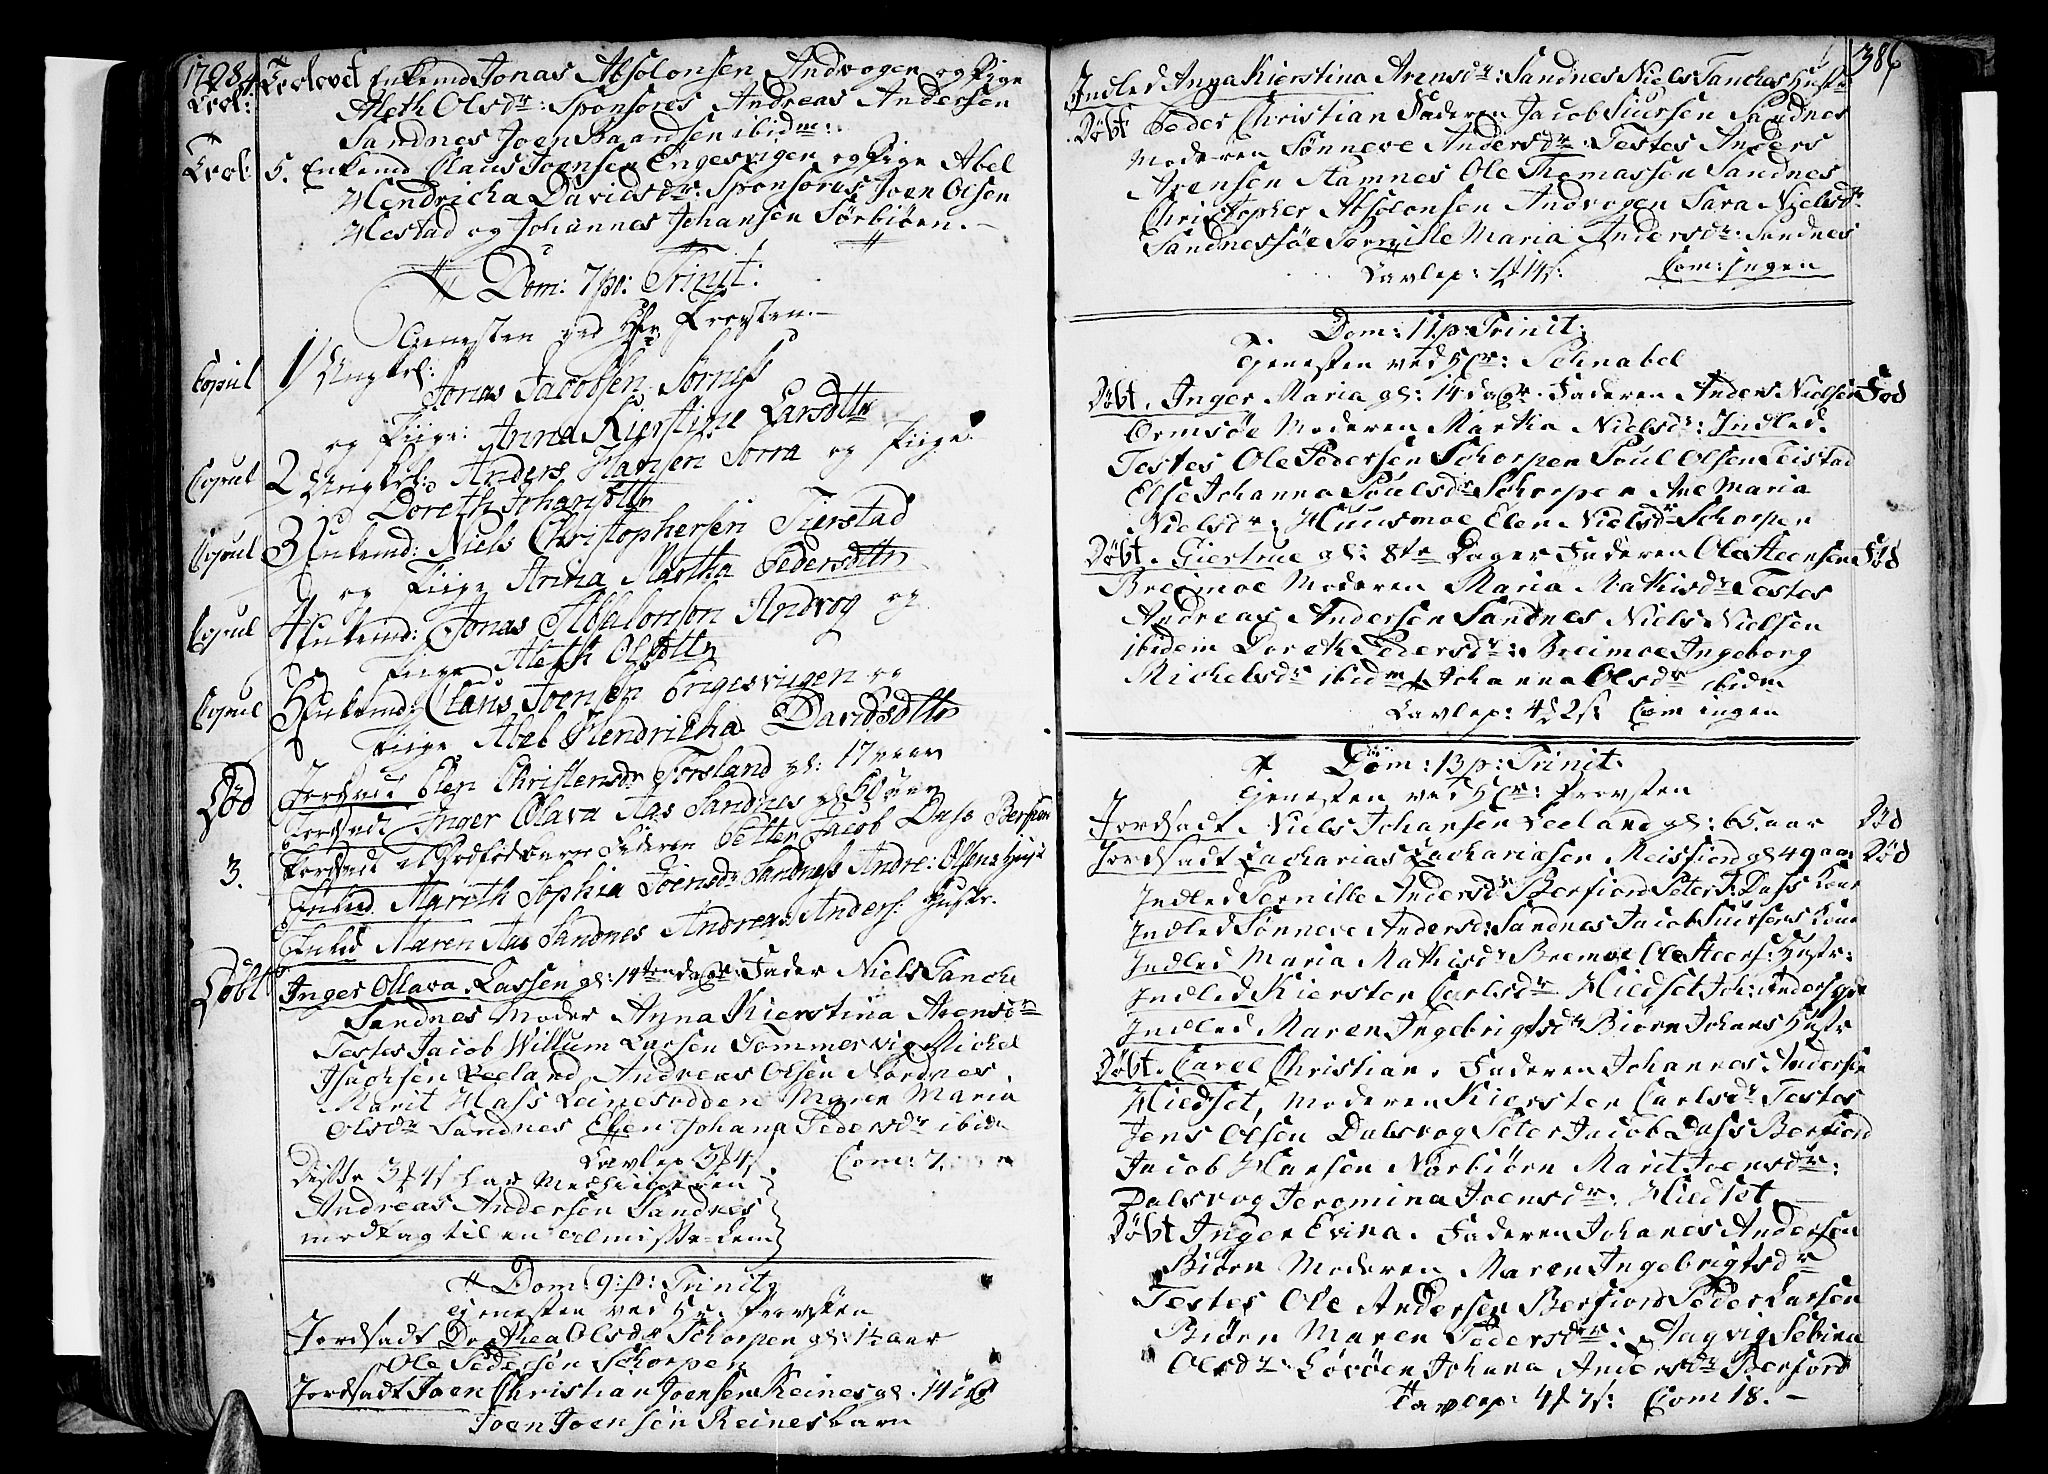 1798
Trol: 4. Trolovet Enkemd Jonas Absolonsen Andvogen og Pige
Aleth Olsdr: Sponsores Andreas Andersen
Sandnes Joen Baardsen ibidm:
Trol: 5. Enkemd Claus Joensen Engesvigen og Pige Abel
Hendricha Davidsdr: Sponsores Joen Olsen
Mestad og Johannes Johansen Sørbiøen.
Dom: 7 p: Trinit:
Tienesten ved Hr Provsten.
Copul 1/ Ungkrl: Jonas Jacobsen Sørnes
og Piige: Anna Kierstine Larsdttr
Copul 2 Ungkrl: Anders Hansen Sorra og Piige
Doreth Johansdttr
Copul 3 Enkemd: Niels Christophersen Tierstad
og Piige Anna Martha Pedersdttr
Copul 4 Enkemd: Jonas Absalonsøn Andvog og
Piige Aleth Olsdttr
Copul 5 Enkemd: Claus Joensen Engesviigen og
Piige Abel Hendricha Davidsdttr
Død Jordsadt Elen Christensdr Forsland gl: 17 aar
Jordsadt Inger Olava Aas Sandnes gl
3. Jordsadt et Dødfød barn Faderen Petter Jacob Dass Berfiord
Indled Marith Sophia Joensdr Sandnes Andr: Olsens Hust:
Indled Maren Aas Sandnes Andreas Anders: Hustr.
Døbt Inger Ollava Lassen gl: 14ten dage Fader Niels Tanche
Sandnes Moder Anna Kierstina Arensdr
Testes Jacob Willum Larsen Tommervig Michel
Isachsen Leeland Andreas Olsen Nordnes
Marit Hass Leinesodden Maren Maria
Olsdr Sandnes Johana Pedersdr ibidm
Tavlep 3 4 Com: 7.
Disse 3 4 har Medhielperen
Andreas Andersen Sandnes
modtag til en almisse-lem
Dom: 9: p: Trinit
Tienesten ved Hr. Provsten
Jordsadt Dorthea Olsdr Schorpen gl: 1½ aar
Ole Pedersen Schorpen
Jordsadt Joen Christian Joensen Reines gl. 14
Joen Joensen Reines barn
386
Indled Anna Kierstina Arensdr: Sandnes Niels Tanches Hustr
Døbt Peder Christian Faderen Jacob Siursen Sandnes
Moderen Sønneve Andersdr: Testes Anders
Arensen Stamnes Ole Thomassen Sandnes
Christopher Absolonsen Andvogen Sara Nielsdr
Sandnessøe Pernille Maria Andersdr: Sandnes
Tavlep: 1 14 Com: ingen
Dom: 11 p: Trinit:
Tienesten ved Hr: Schnabel
Døbt. Inger Maria gl: 14 dage. Faderen Anders Nielsen Fød
Ormsøe Moderen Martha Nielsdr: Indled.
Testes Ole Pedersen Schorpen Poul Olsen Teistad
Else Johanna Poulsdr Schorpen Ane Maria
Nielsdr: Huusmoe Elen Nielsdr Schorpen
Døbt. Giertrue gl: 8te Dager Faderen Ole Steensen Fød
Breimoe Moderen Maria Mathisdr Testes
Andreas Andersen Sandnes Niels Nielsen
ibidem Doreth Pedersdr: Breimoe Ingeborg
Michelsdr ibidm Johanna Olsdr ibidm
Tavlep: 4 2 Com ingen
Dom: 13 p: Trinit:
Tienesten ved Hr: Provsten
Jordsadt Niels Johansen Leeland gl: 65. aar Død
Jordsadt Zacharias Zachariasen Meisfiord gl 49 aar Død
Indled Pernille Andersdr Berfiord Peter J: Dass Kone
Indled Sønneve Andersd: Sandnes Jacob Siursens Kone
Indled Maria Mathisdr Bremoe Ole Steens: Hustr:
Indled Kiersten Carlsdr Hiedset Joh: Anders
Indled Maren Ingebrigtsdr Biørn Johans Hustr
Døbt. Carel Christian. Faderen Johannes Andersen
Hiedset, Moderen Kiersten Carlsdr Testes
Jens Olsen Dalsvog Peter Jacob Dass Berfiord
Jacob Hansen Norbiørn Marit Joensdr:
Dalsvog Jeromina Joensdr: Hiedset
Døbt Inger Evina. Faderen Johanes Andersen
Biørn Moderen Maren Ingebrigtsdr
Testes Ole Andersen Berfiord Peder Larsen
Biørn Maren Pedersdr: Aagvig Sebina
Olsdr Lovøen Johana Andersdr Berford
Tavlep: 4 7 Com 18.